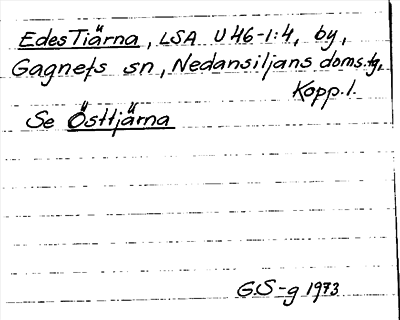 Edes Tiärna, LSA U 46-1:4, by,
Gagnefs sn, Nedansiljans doms.tg,
Kopp.l.
Se Östtjärna
G.S-g 1973